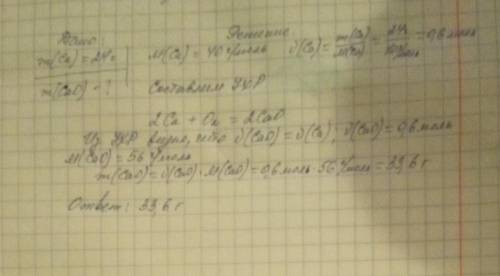 Дано: Решение
m(Ca) = 24г M(Ca) = 40 г/моль ν(Ca) = m(Ca)/M(Ca) = 24г/40г/моль = 0,6 моль
m(CaO) - ? Составляем УХР
2Ca + O₂ = 2CaO
Из УХР видно, что ν(CaO) = ν(Ca); ν(CaO) = 0,6 моль
M(CaO) = 56 г/моль
m(CaO) = ν(CaO) · M(CaO) = 0,6 моль · 56 г/моль = 33,6 г
Ответ: 33,6 г